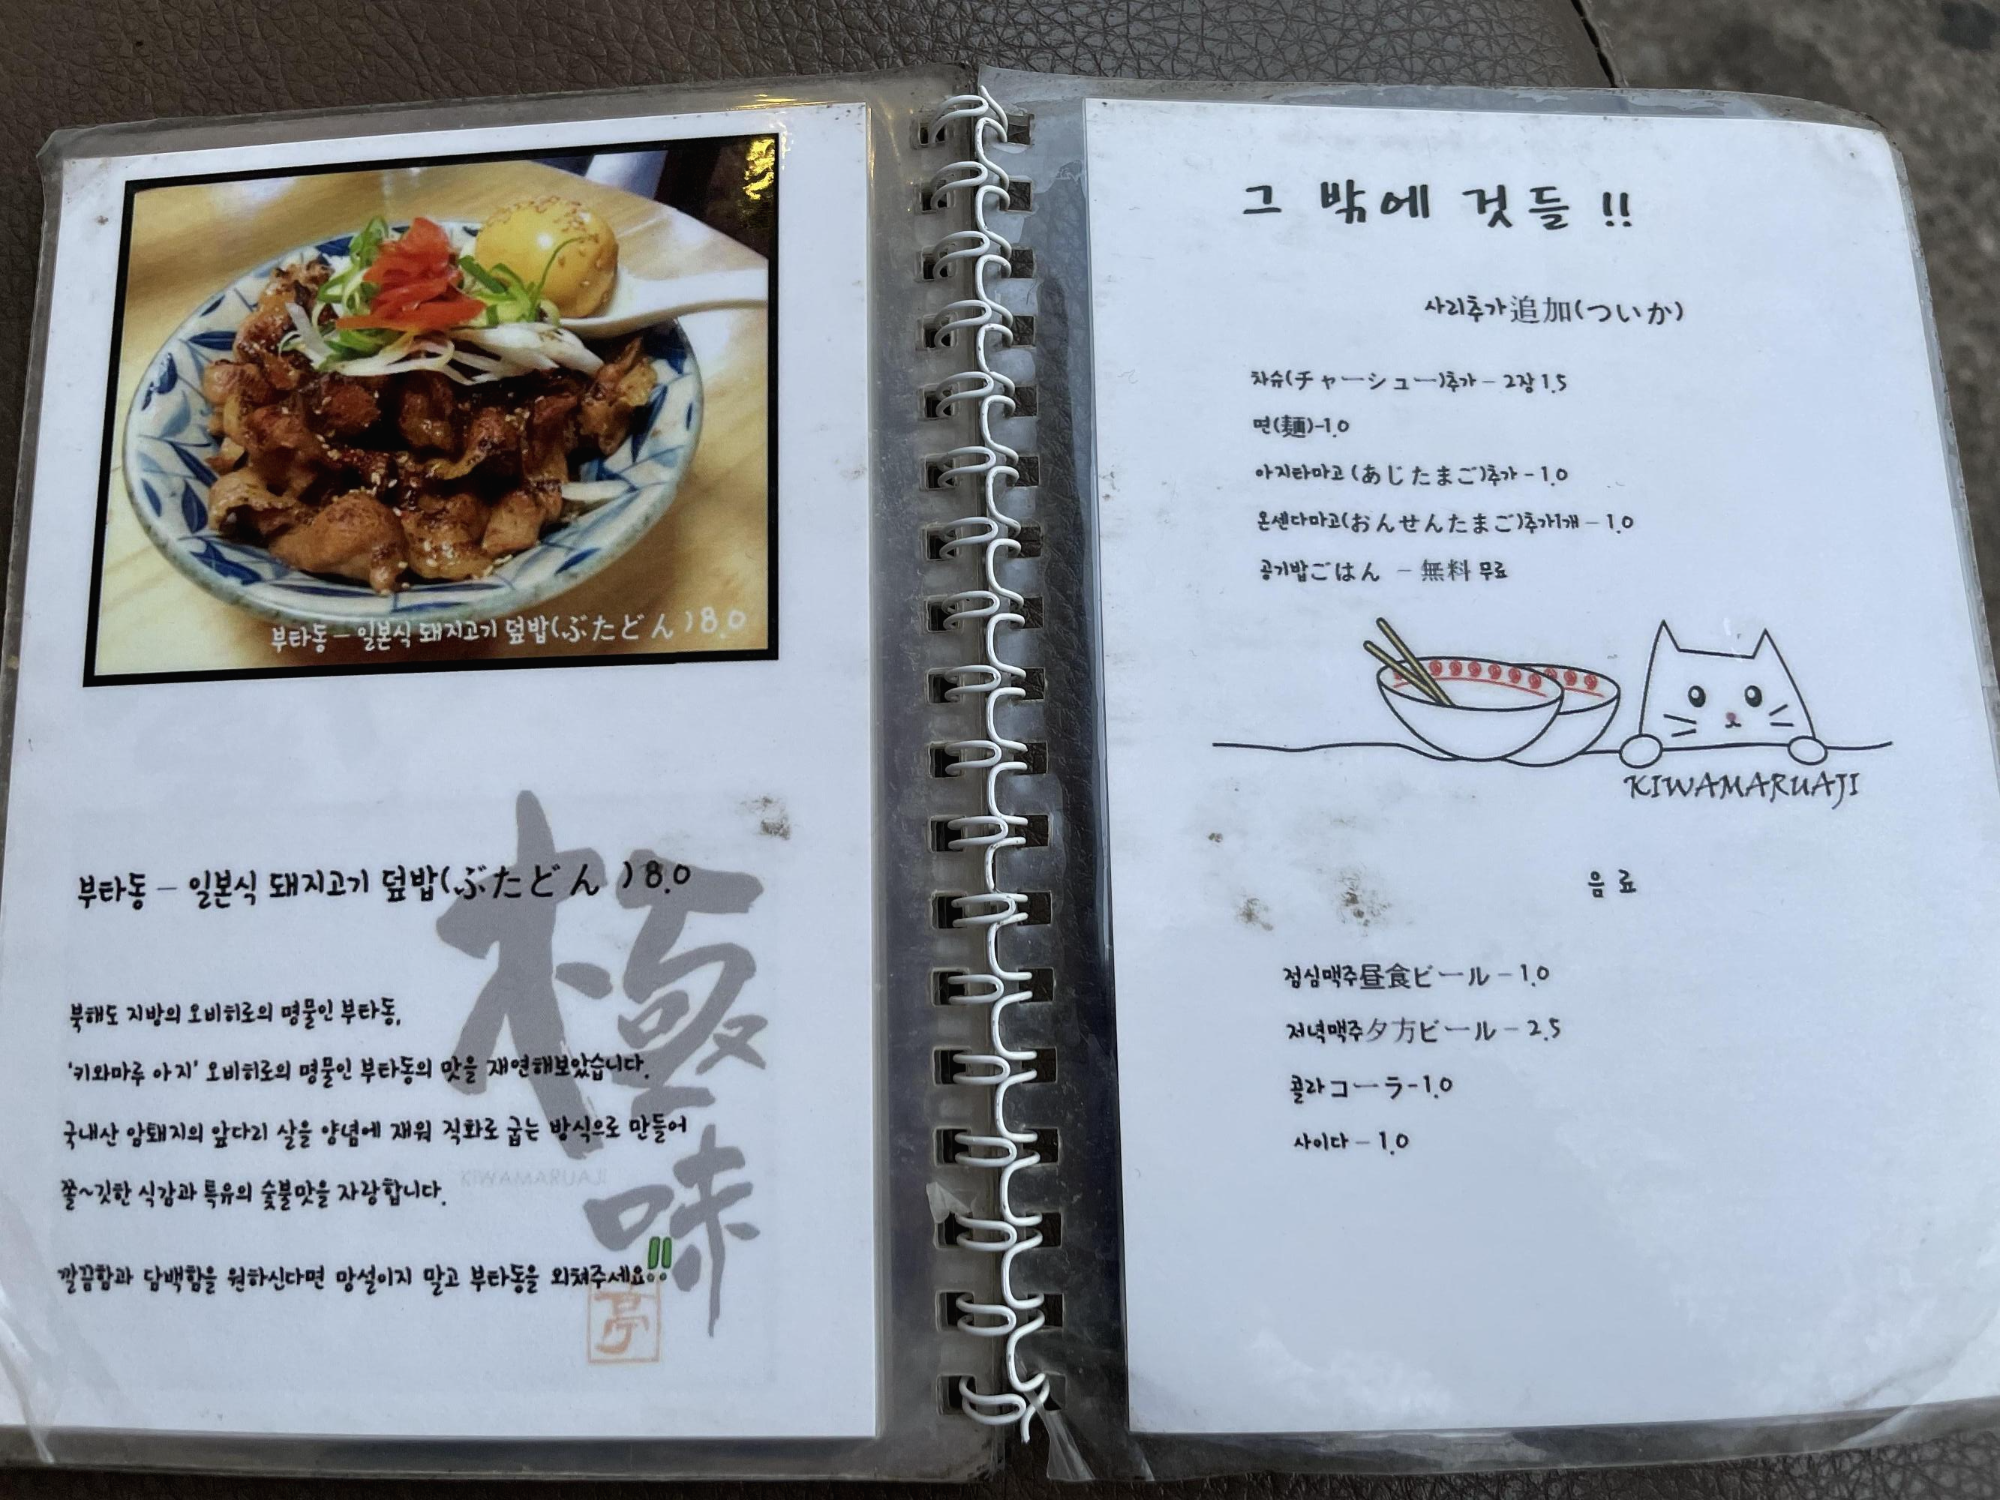 부타동 – 일본식 돼지고기 덮밥(ぶたどん )8.0
부타동 – 일본식 돼지고기 덮밥(ぶたどん )8.0
북해도 지방의 오비히로의 명물인 부타동,
'키와마루 아지' 오비히로의 명물인 부타동의 맛을 재연해보았습니다.
국내산 암퇘지의 앞다리 살을 양념에 재워 직화로 굽는 방식으로 만들어
쫄~깃한 식감과 특유의 숯불맛을 자랑합니다.
깔끔함과 담백함을 원하신다면 망설이지 말고 부타동을 외쳐주세요!!
極味
亭
그 밖에 것들 !!
사리추가追加(ついか)
차슈(チャーシュー)추가 – 2장 1.5
면(麺)-1.0
아지타마고 (あじたまご)추가 – 1.0
온센다마고(おんせんたまご)추가1개 – 1.0
공기밥ごはん – 無料 무료
KIWAMARUAJI
음료
점심맥주昼食ビール – 1.0
저녁맥주夕方ビール – 2.5
콜라コーラ-1.0
사이다 – 1.0